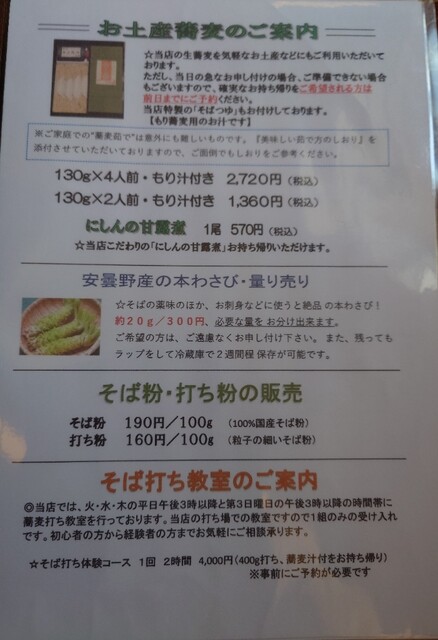 お土産蕎麦のご案内
☆当店の生蕎麦を気軽なお土産などにもご利用いただいて
おります。
ただし、当日の急なお申し付けの場合、ご準備できない場合
もございますので、確実なお持ち帰りをご希望される方は
前日までにご予約ください。
当店特製の「そばつゆ」もお付けしております。
【もり蕎麦用のお汁です】
※ご家庭での“蕎麦茹で”は意外にも難しいものです。『美味しい茹で方のしおり』を
添付させていただいておりますので、ご面倒でもしおりをご参考ください。
130g×4人前・もり汁付き 2,720円（税込）
130g×2人前・もり汁付き 1,360円（税込）
にしんの甘露煮 1尾 570円（税込）
☆当店こだわりの「にしんの甘露煮」お持ち帰りいただけます。
安曇野産の本わさび・量り売り
☆そばの薬味のほか、お刺身などに使うと絶品の本わさび！
約20g／300円、必要な量をお分け出来ます。
ご希望の方は、ご遠慮なくお申し付け下さい。また、残っても
ラップをして冷蔵庫で2週間程保存が可能です。
そば粉・打ち粉の販売
そば粉 190円／100g （100%国産そば粉）
打ち粉 160円／100g （粒子の細いそば粉）
そば打ち教室のご案内
◎当店では、火・水・木の平日午後3時以降と第3日曜日の午後3時以降の時間帯に
蕎麦打ち教室を行っております。当店の打ち場での教室ですので1組のみの受け入れ
です。初心者の方から経験者の方までお気軽にご相談承ります。
☆そば打ち体験コース 1回 2時間 4,000円（400g打ち、蕎麦汁付をお持ち帰り）
※事前にご予約が必要です